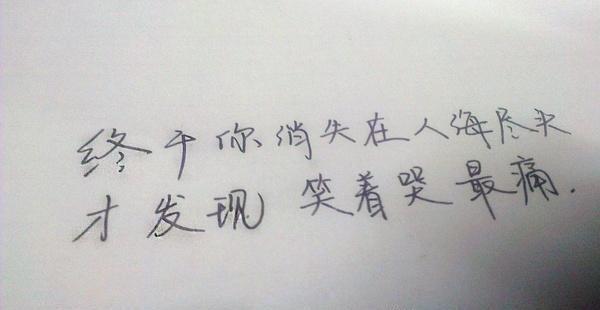 终于你消失在人海尽头
才发现 笑着哭最痛.